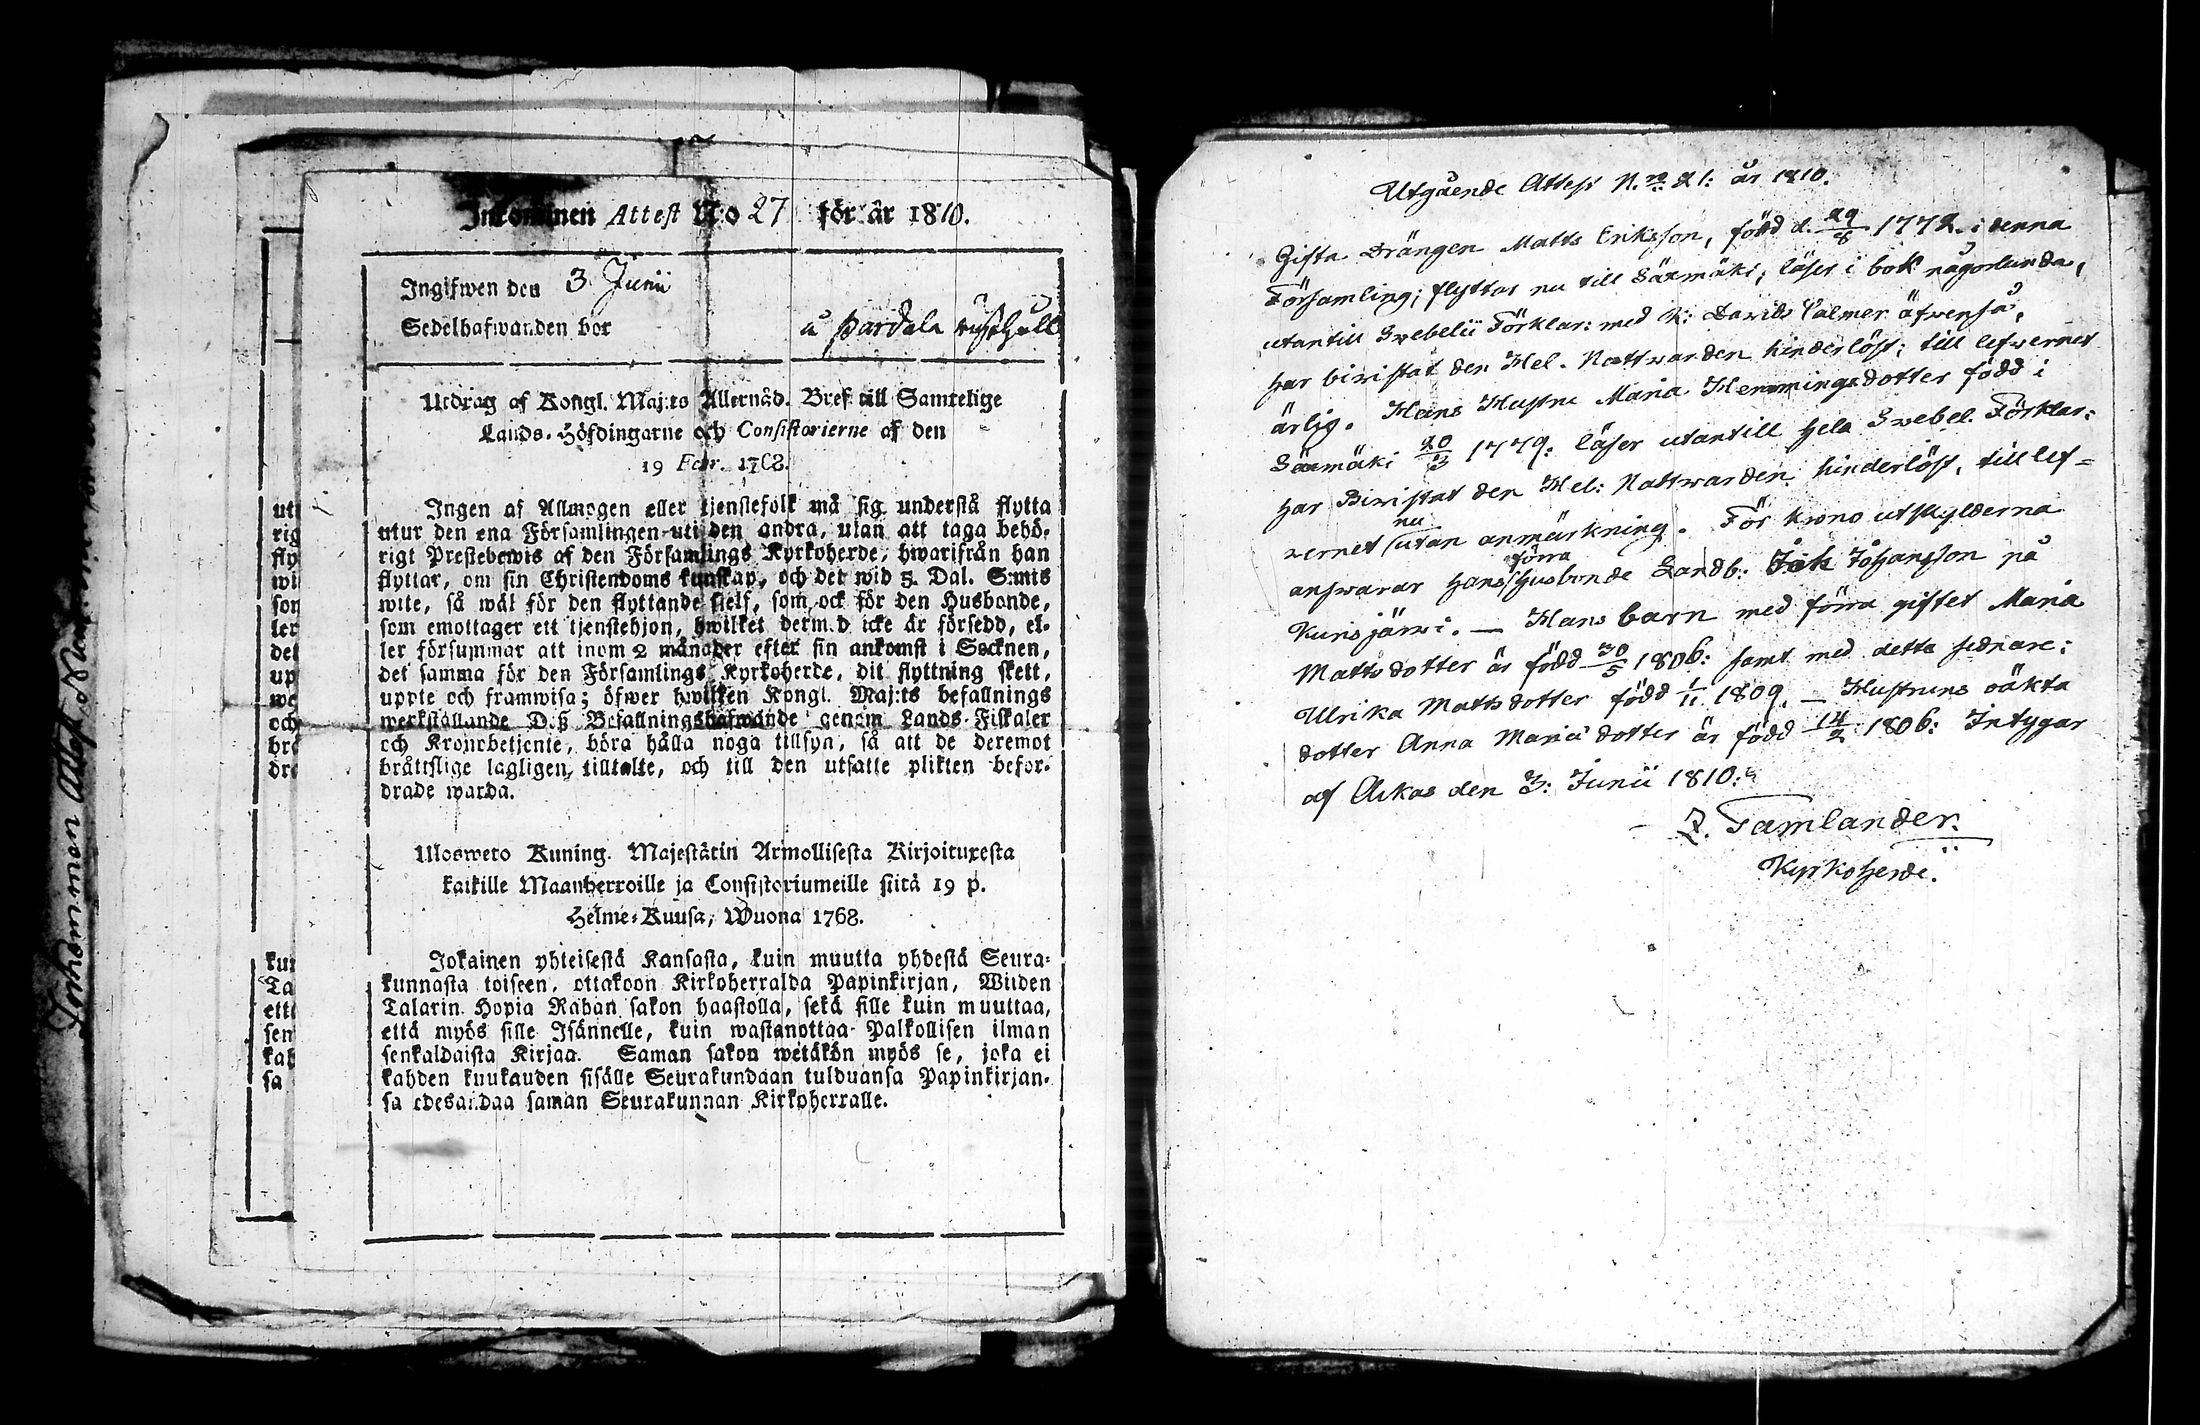 Inkommen Attest No 27 för år 1810.
Ingifwen den 3 Junii
Sedelhafwanden bor å Pardala
Utdrag af Kongl. Maj:ts Allernåd. Bref till Samtelige
Lands-Höfdingarne och Consistorierne af den
19 Febr. 1768.
Ingen af Allmogen eller tjenstefolk må sig understå flytta
utur den ena Församlingen uti den andra, utan att taga behö-
rigt Prestebewis af den Församlings Kyrkoherde, hwarifrån han
flyttar, om sin Christendoms kunskap, och det wid 5. Dal. S:mts
wite, så wäl för den flyttande sielf, som ock för den Husbonde,
som emottager ett tjenstehjon, hwilket dermed icke är försedd, el-
ler försummar att inom 2 månader efter sin ankomst i Socknen,
det samma för den Församlings Kyrkoherde, dit flyttning skett,
uppte och framwisa; öfwer hwilken Kongl. Maj:ts befallnings
werkställande Deß Befallningshafwande genom Lands-Fiskaler
och Kronobetjente, böra hålla noga tillsyn, så att de deremot
bråttslige lagligen tilltalte, och till den utsatte plikten befor-
drade warda.
Ulosweto Kuning. Majestätin Armollisesta Kirjoituxesta
kaikille Maanherroille ja Consistoriumeille siitä 19 p.
Helme-Kuusa, Wuona 1768.
Jokainen yhteisestä Kansasta, kuin muutta yhdestä Seura-
kunnasta toiseen, ottakoon Kirkoherralda Papinkirjan, Wiiden
Talarin Hopia Rahan sakon haastolla, sekä sille kuin muuttaa,
että myös sille Isännelle, kuin wastanottaa Palkollisen ilman
senkaldaista Kirjaa. Saman sakon wetäkön myös se, joka ei
kahden kuukauden sisälle Seurakundaan tulduansa Papinkirjan-
sa edesandaa saman Seurakunnan Kirkoherralle.
uti
rig
fly
wi
son
ler
det
up
we
och
brå
dra
kun
Ta
että
sen
kah
sa
Inkommen Attest
Utgående Attest N:ro 21: år 1810.
Gifta Drängen Matts Eriksson, född d. 29/8 1772. i denna
Församling; flyttar nu till Säxmäki; läser i bok någorlunda,
utantill Svebelii Förklar: med K: Davids Psalmer äfvenså,
har bivistat den Hel. Nattvarden hinderlöst; till lefvernet
ärlig. Hans Hustru Maria Hemmingsdotter född i
Säxmäki 20/3 1779: läser utantill hela Svebel. Förklar:
har Bivistat den Hel: Nattvarden hinderlöst, till lef=
vernet nu utan anmärkning. För krono utskylderna
ansvarar hans förra Husbonde Landb: Johansson på
Kurisjärvi. — Hans barn med förra giftet Maria
Mattsdotter är född 30/5 1806: samt med detta sednare:
Ulrika Mattsdotter född 1/11 1809. — Hustruns oäkta
dotter Anna Mariædotter är född 14/2 1806: Intygar
af Akas den 3: Junii 1810:
Z. Tamlander.
Kyrkoherde.